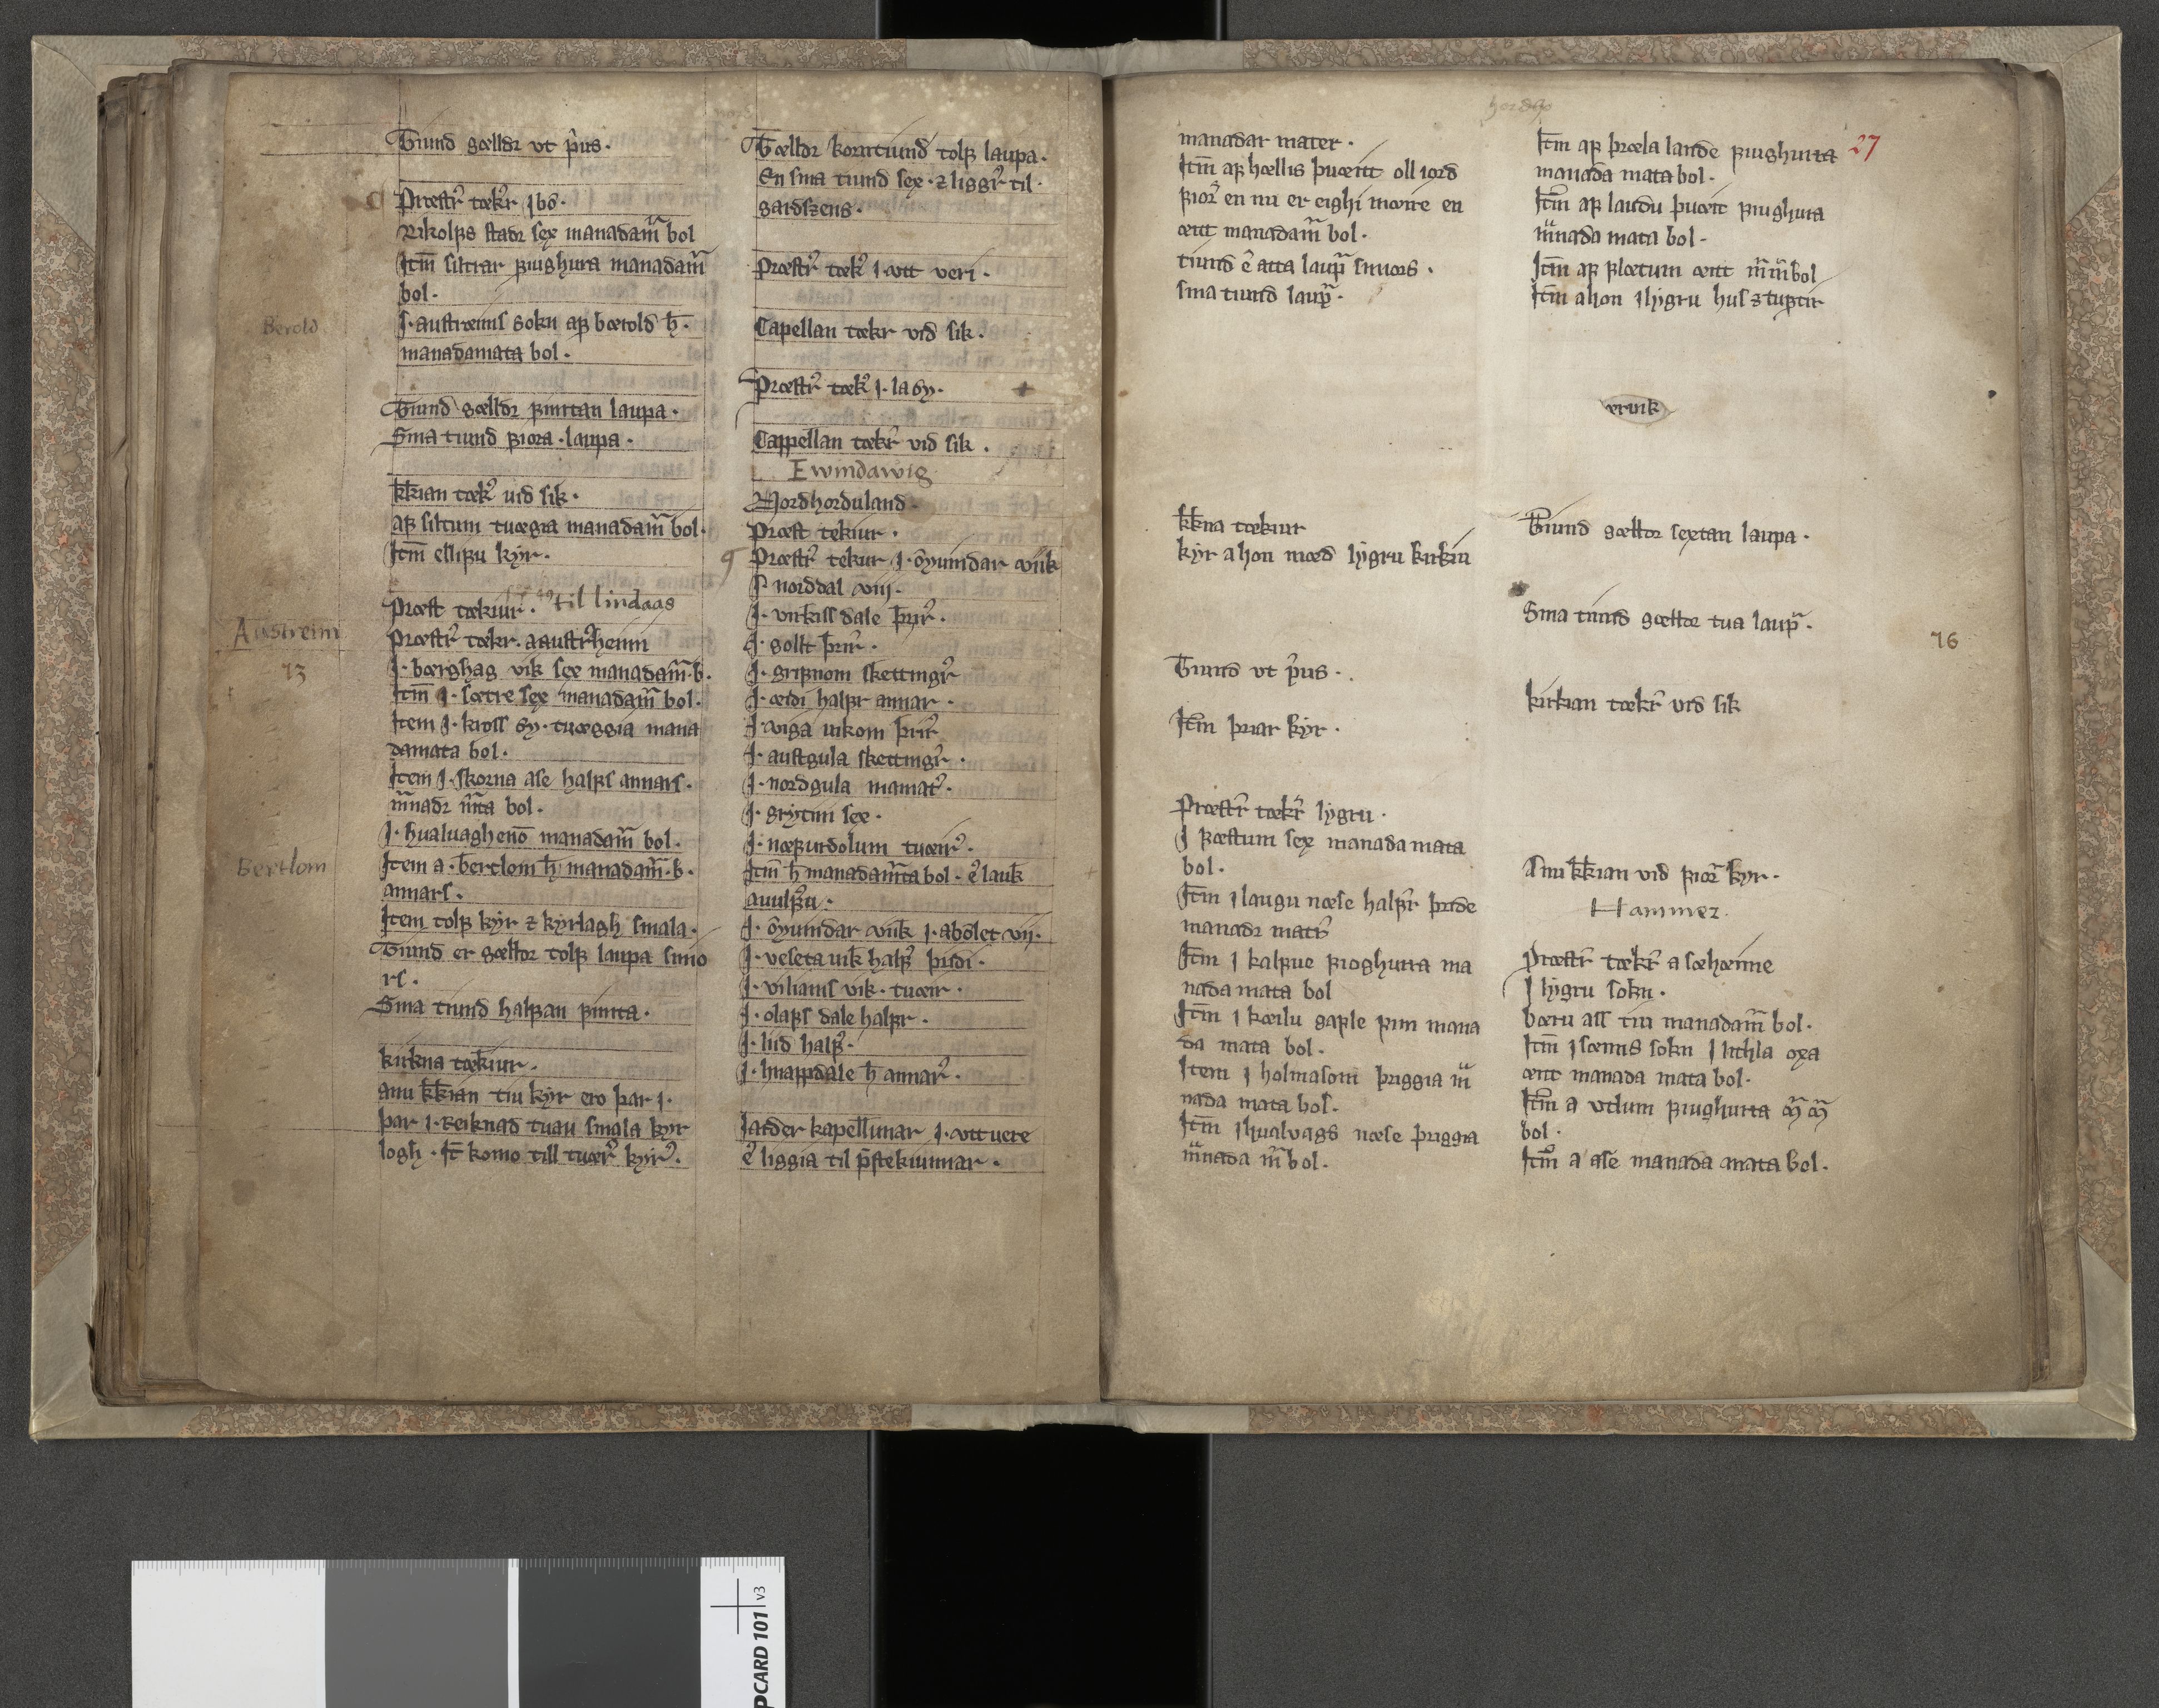 Tiund gælldz vt pus.
Præstr tækr jbo.
Rikolfs stadr sex manadam bol
Itm siltrar fiughura manadam
bol.
j. austræims sokn af bærold h.
manadamata bol.
Berold
Tiund gælldz fimtan laupa.
Sma tiund fiora. laupa.
kkian tækr uid sik.
af siltum tuægia manadam bol.
Itm ellifu kyr.
Præst tækiur. til lindaas
Austreim
Præstr tækr. a austrheimi
13
J. bærghag vik sex manadam. b.
Itm j. sætre sex manadam bol.
Item j. kross by. tuæggia mana
damata bol.
Item j. skorna ase halfs annars.
mnadr mta bol.
J. hualuagheno manadam bol.
Bertlom
Item a. bertlom h manadam. b.
annars.
Item tolf kyr z kyrlagh smala.
Tiund er gælldz tolf laupa smio
rs.
Sma tiund halfan fimta.
kirkna tækiur.
a nu kkian tiu kyr ero þar j.
þar j. Reiknad tuau smala kyr
logh. It komo till tuær kyr.
Gælldz korntiund tolf laupa.
En sma tiund sex. z liggr til
gardszens.
Præstr tækr j. ott veri.
Capellan tækr vid sik.
Præstr tækr j. la by.
Cappellan tækr vid sik.
Ewindawig
Nordhorduland.
Præst tekiur.
Præstr tekur j. öyuindar vik
J. norddal viij.
J. virkiss dale þrir.
J. solít þrir.
J. grifnom skettingr
J. æidi halfr annar.
J. viga uikom þrir
J. austgula skettingr.
J. nordgula mamat.
J. grytim sex.
J. næfurdolum tuæir.
Itm h manadamta bol. e lauk
auulfu.
J. öyuindar vik j. abölet vij.
J. veseta uik halfr þridi.
J. viliams vik. tuæir.
J. olafs dale halfr.
J. lid halfr.
J. hnappdale h annar.
Jarder kapellunar j. ott uere
e liggia til pstekiunnar.
manadar mater.
Itm af hællis þuæit oll iord
fior en nu er eighi mæire en
æitt manadam bol.
tiund e atta laup smiors.
sma tiund laup.
kkna tækiur
kyr a hon mæd lygru kirkiu
Tiund vt pus.
Itm þriar kyr.
Præstr tækr lygru.
J fæstum sex manada mata
bol.
Itm j laugu næse halfr þride
manadr matr
Itm j kalfue fioghurra ma
nada mata bol
Itm j kæilu gaple fim mana
da mata bol.
Item j holmasom þriggia m
nada mata bol.
Itm j hualvags næse þriggia
mnada m bol.
27
Itm af þræla lande fiughurra
manada mata bol.
Itm af landu þuæit fiughura
mnada mata bol.
Itm af flætum æitt m m bol
Itm a hon j lygru hus z tuptir
vruik
Tiund gælldz sextan laupa.
Sma tiund gælldz tua laup.
16
kirkian tækr vid sik
A nu kkian vid fior kyr.
Hammer.
Præstr tækr a sæhæime
J lygru sokn.
bæru ass tiu manadam bol.
Itm j sæims sokn j lithla oxa
æitt manada mata bol.
Itm a vtlum fiughurra m m
bol.
Itm a ase manada mata bol.
PCARD 101 v3